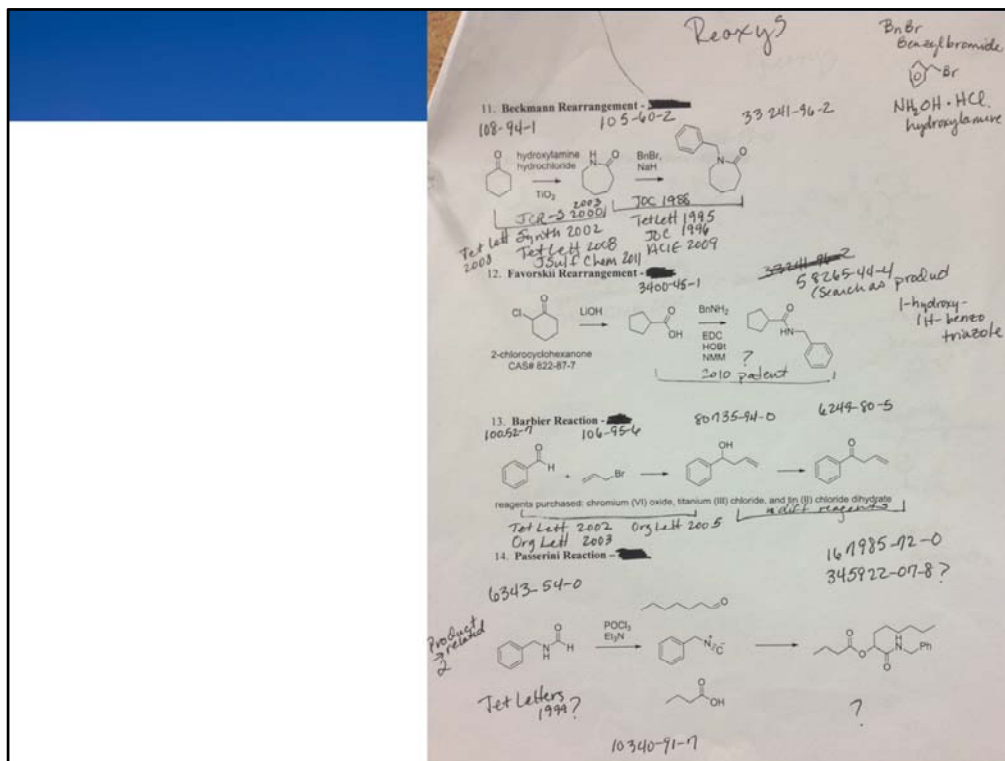 Reaxys
BnBr
Benzylbromide
Br
NH₂OH · HCl
hydroxylamine
11. Beckmann Rearrangement -
108-94-1
105-60-2
33241-96-2
O
hydroxylamine
hydrochloride
TiO₂
H
N
O
BnBr,
NaH
N
O
2003
JCR-S 2000
JOC 1988
Tet Lett
2008
Synth 2002
Tet Lett 1995
Tet Lett 2008
JOC 1996
JSulf Chem 2011
ACIE 2009
12. Favorskii Rearrangement -
3400-45-1
33241-96-2
58265-44-4
(Search as product
1-hydroxy-
1H-benzo
triazole
O
Cl
LiOH
O
OH
BnNH₂
EDC
HOBt
NMM
?
O
HN
2-chlorocyclohexanone
CAS# 822-87-7
2010 patent
13. Barbier Reaction -
10052-7
106-95-6
80735-94-0
6249-80-5
O
H
+
Br
OH
O
reagents purchased: chromium (VI) oxide, titanium (III) chloride, and tin (II) chloride dihydrate
diff reagents
Tet Lett 2002
Org Lett 2005
Org Lett 2003
14. Passerini Reaction -
167985-72-0
345922-07-8?
6343-54-0
O
Product
→ related
2
O
N
H
H
POCl₃
Et₃N
N
C
O
O
H
N
Ph
O
Tet Letters
1999?
O
OH
?
10340-91-7